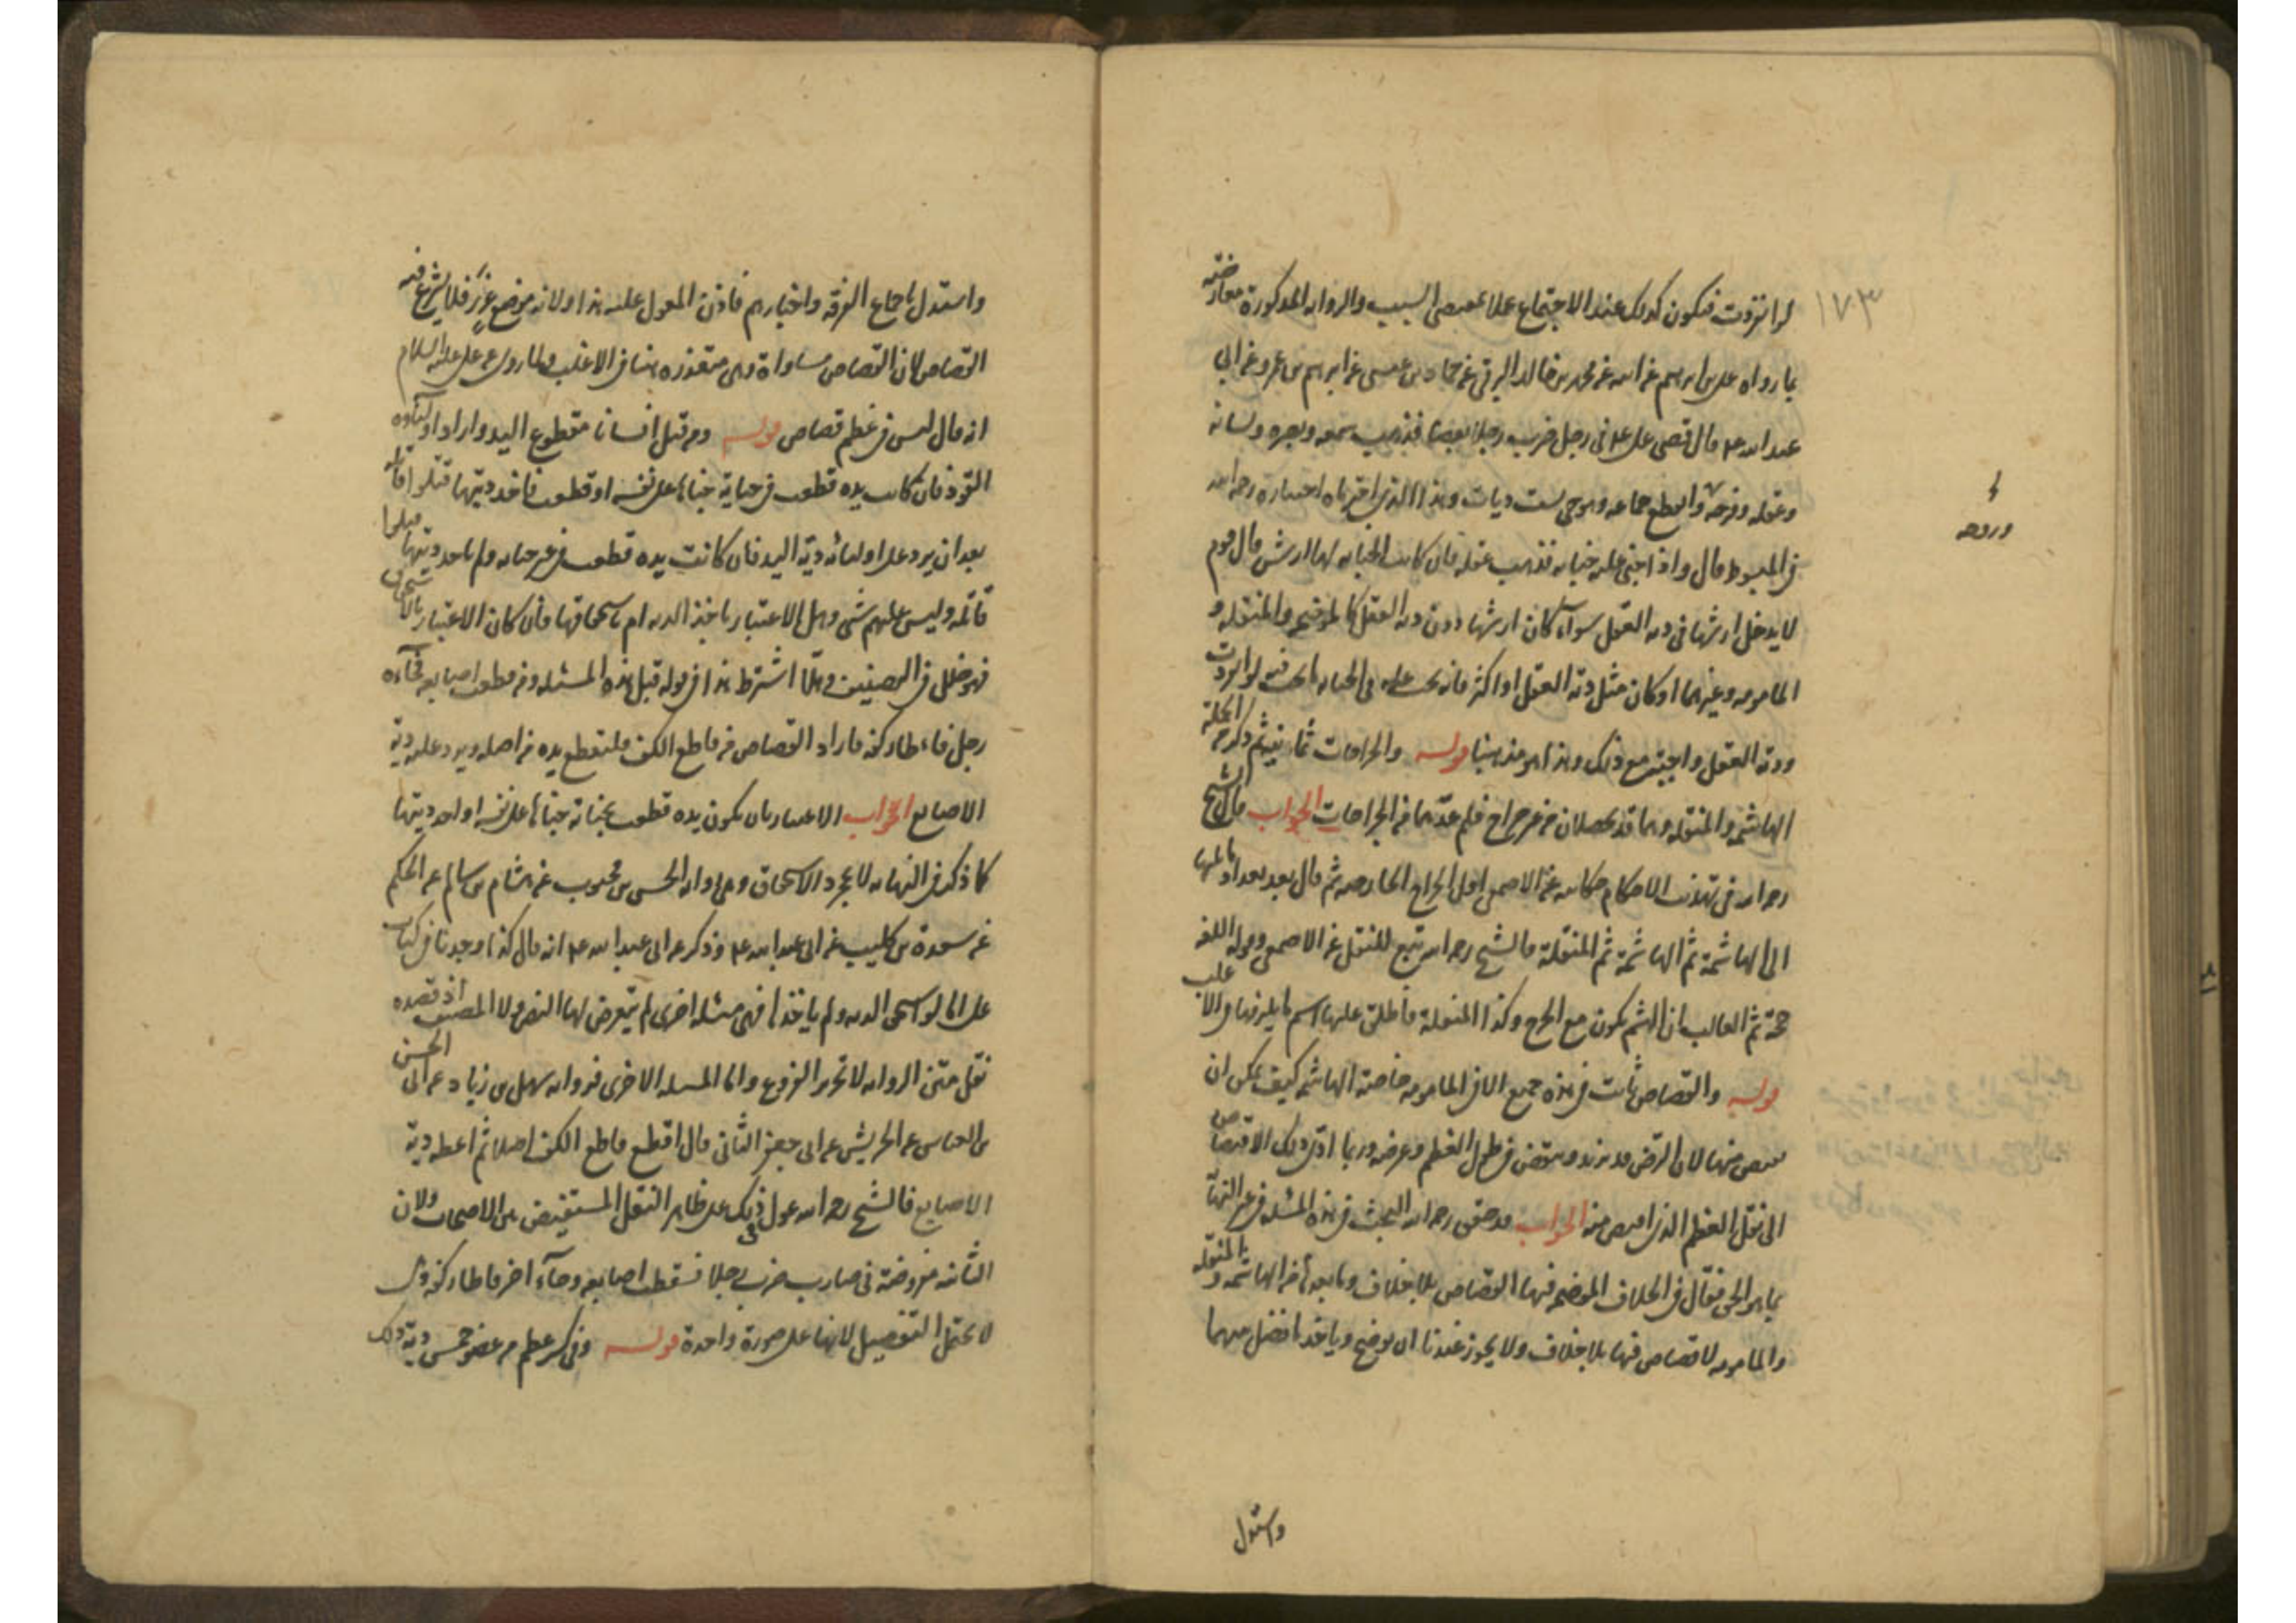 ١٧٣
لو انفردت فتكون كذلك عند الاجتماع عملا بمقتضى السبب والرواية المذكورة معارضة
بما رواه علي بن ابرهيم عن ابيه عن محمد بن خالد البرقي عن حماد بن عيسى عن ابرهيم بن عمر عن ابي
عبد الله ع قال قضى علي ع في رجل ضرب رجلا بعصا فذهب سمعه وبصره ولسانه
وعقله وفرجه وانقطع جماعه وهو حي بست ديات وهذا الذي اخترناه اختياره رحمه الله
في المبسوط قال واذا جنى عليه جناية فذهب عقله فان كانت الجناية لها ارش قال قوم
لا يدخل ارشها في دية العقل سواء كان ارشها دون دية العقل كالموضحة والمنقلة و
المامومة وغيرهما او كان مثل دية العقل او اكثر فانه يجب عليه في الجناية ما يجب فيه لو انفردت
ودية العقل واجبة مع ذلك وهذا هو مذهبنا قوله والجراحات ثمانية ثم ذكر في الجملة
الهاشمة والمنقلة وهما قد يحصلان من غير جراح فلم عدهما في الجراحات الجواب قال الشيخ
رحمه الله في تهذيب الاحكام حكاية عن الاصمعي اول الجراح الحارصة ثم قال بعد تعدادها
الى الهاشمة ثم الهاشمة ثم المنقلة فالشيخ رحمه الله تبع للنقل عن الاصمعي وقوله في اللغة
حجة ثم الغالب ان الهشم يكون مع الجرح وكذا المنقلة فاطلق عليها اسم ما يلزمها في الاغلب
قوله والقصاص ثابت في هذه جميع الا في المامومة خاصة الهاشمة كيف يمكن ان
يقتص منها لان الرض قد يزيد وينقص في طول العظم وعرضه وربما ادى ذلك الاقتصاص
الى نقل العظم الذي اقتص منه الجواب قد حقق رحمه الله البحث في هذه المسئلة في غير النهاية
بما هو الحق فقال في الخلاف الموضحة فيها القصاص بلا خلاف وما بعدها من الهاشمة والمنقلة
والمامومة لا قصاص فيها بلا خلاف ولا يجوز عندنا ان يوضح وياخذ ما فضل بينهما
واستدل
وفرجه
واستدل باجماع الفرقة واخبارهم فاذن المعول عليه هذا ولانه موضع غرر فلا يشرع فيه
القصاص لان القصاص مساواة وهي متعذرة هنا في الاغلب ولما روى عن علي عليه السلام
انه قال ليس في عظم قصاص قوله ومن قتل انسانا مقطوع اليد واراد اولياؤه
القود فان كانت يده قطعت في جناية جناها على نفسه او قطعت فاخذ ديتها قتلوا قاتله
بعد ان يرد على اوليائه دية اليد فان كانت يده قطعت في غير جناية ولم ياخذ ديتها قتلوا
قاتله وليس عليهم شئ وهل الاعتبار باخذ الدية ام باستحقاقها فان كان الاعتبار بالاستحقاق
فهو خلل في الموضعين وهلا اشترط هذا في قوله قبل هذه المسئلة ومن قطعت اصابعه فجاءه
رجل فاطار كفه فاراد القصاص من قاطع الكف فليقطع يده من اصله ويرد عليه دية
الاصابع الجواب الاعتبار بان يكون يده قطعت بجناية جناها على نفسه او اخذ ديتها
كما ذكر في النهاية لا بمجرد الاستحقاق وهي رواية الحسن بن محبوب عن هشام بن سالم عن الحكم
عن سورة بن كليب عن ابي عبد الله ع وذكر عن ابي عبد الله ع انه قال كذا وجدنا في كتاب
علي اما لو استحق الدية ولم ياخذها فهي مسئلة اخرى لم يتعرض لها النص ولا المصنف اذ قصده
نقل متن الرواية لا تحرير الفروع واما المسئلة الاخرى فرواية سهل بن زياد عن الحسن
بن العباس عن الحريش عن ابي جعفر الثاني قال اقطع قاطع الكف اصلا ثم اعطه دية
الاصابع فالشيخ رحمه الله عول في ذلك على ظاهر النقل المستفيض بين الاصحاب ولان
الثانية مفروضة في ضارب ضرب رجلا فسقطت اصابعه وجاء اخر فاطار كفه وذلك
لا يحتمل التفصيل لانها على صورة واحدة قوله وفي كسر عظم من عضو خمس دية ذلك